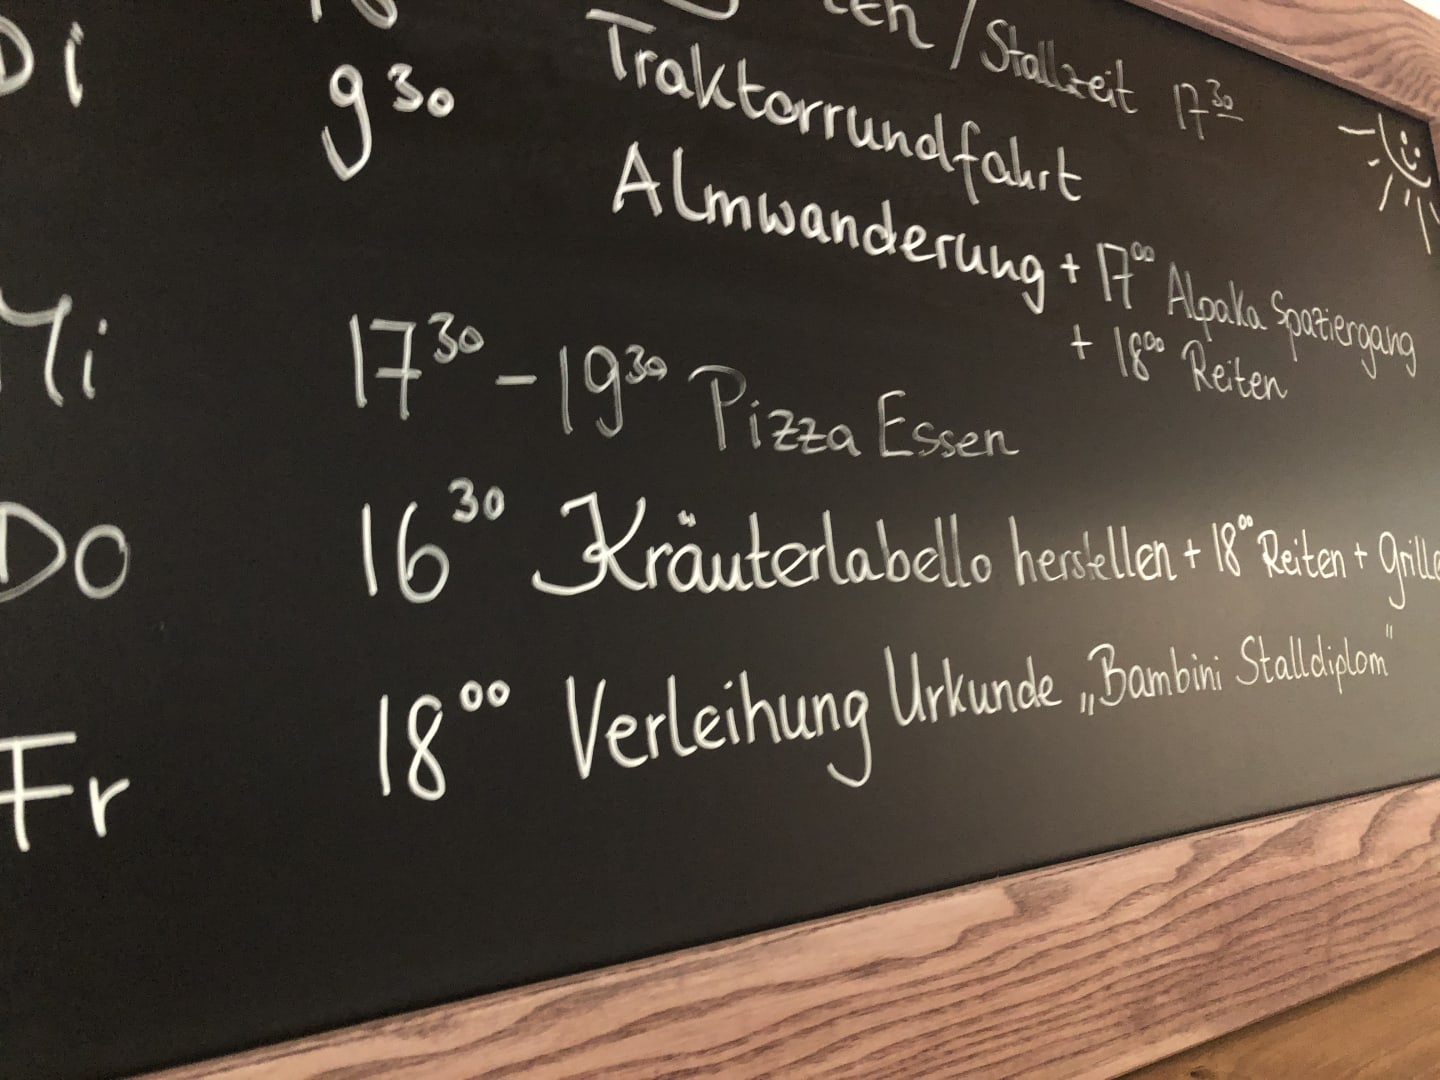 / Stallzeit 17³⁰
Traktorrundfahrt
Di 9³⁰ Almwanderung + 17⁰⁰ Alpaka Spaziergang
+ 18⁰⁰ Reiten
Mi 17³⁰ - 19³⁰ Pizza Essen
Do 16³⁰ Kräuterlabello herstellen + 18⁰⁰ Reiten + Grille
Fr 18⁰⁰ Verleihung Urkunde „Bambini Stalldiplom"